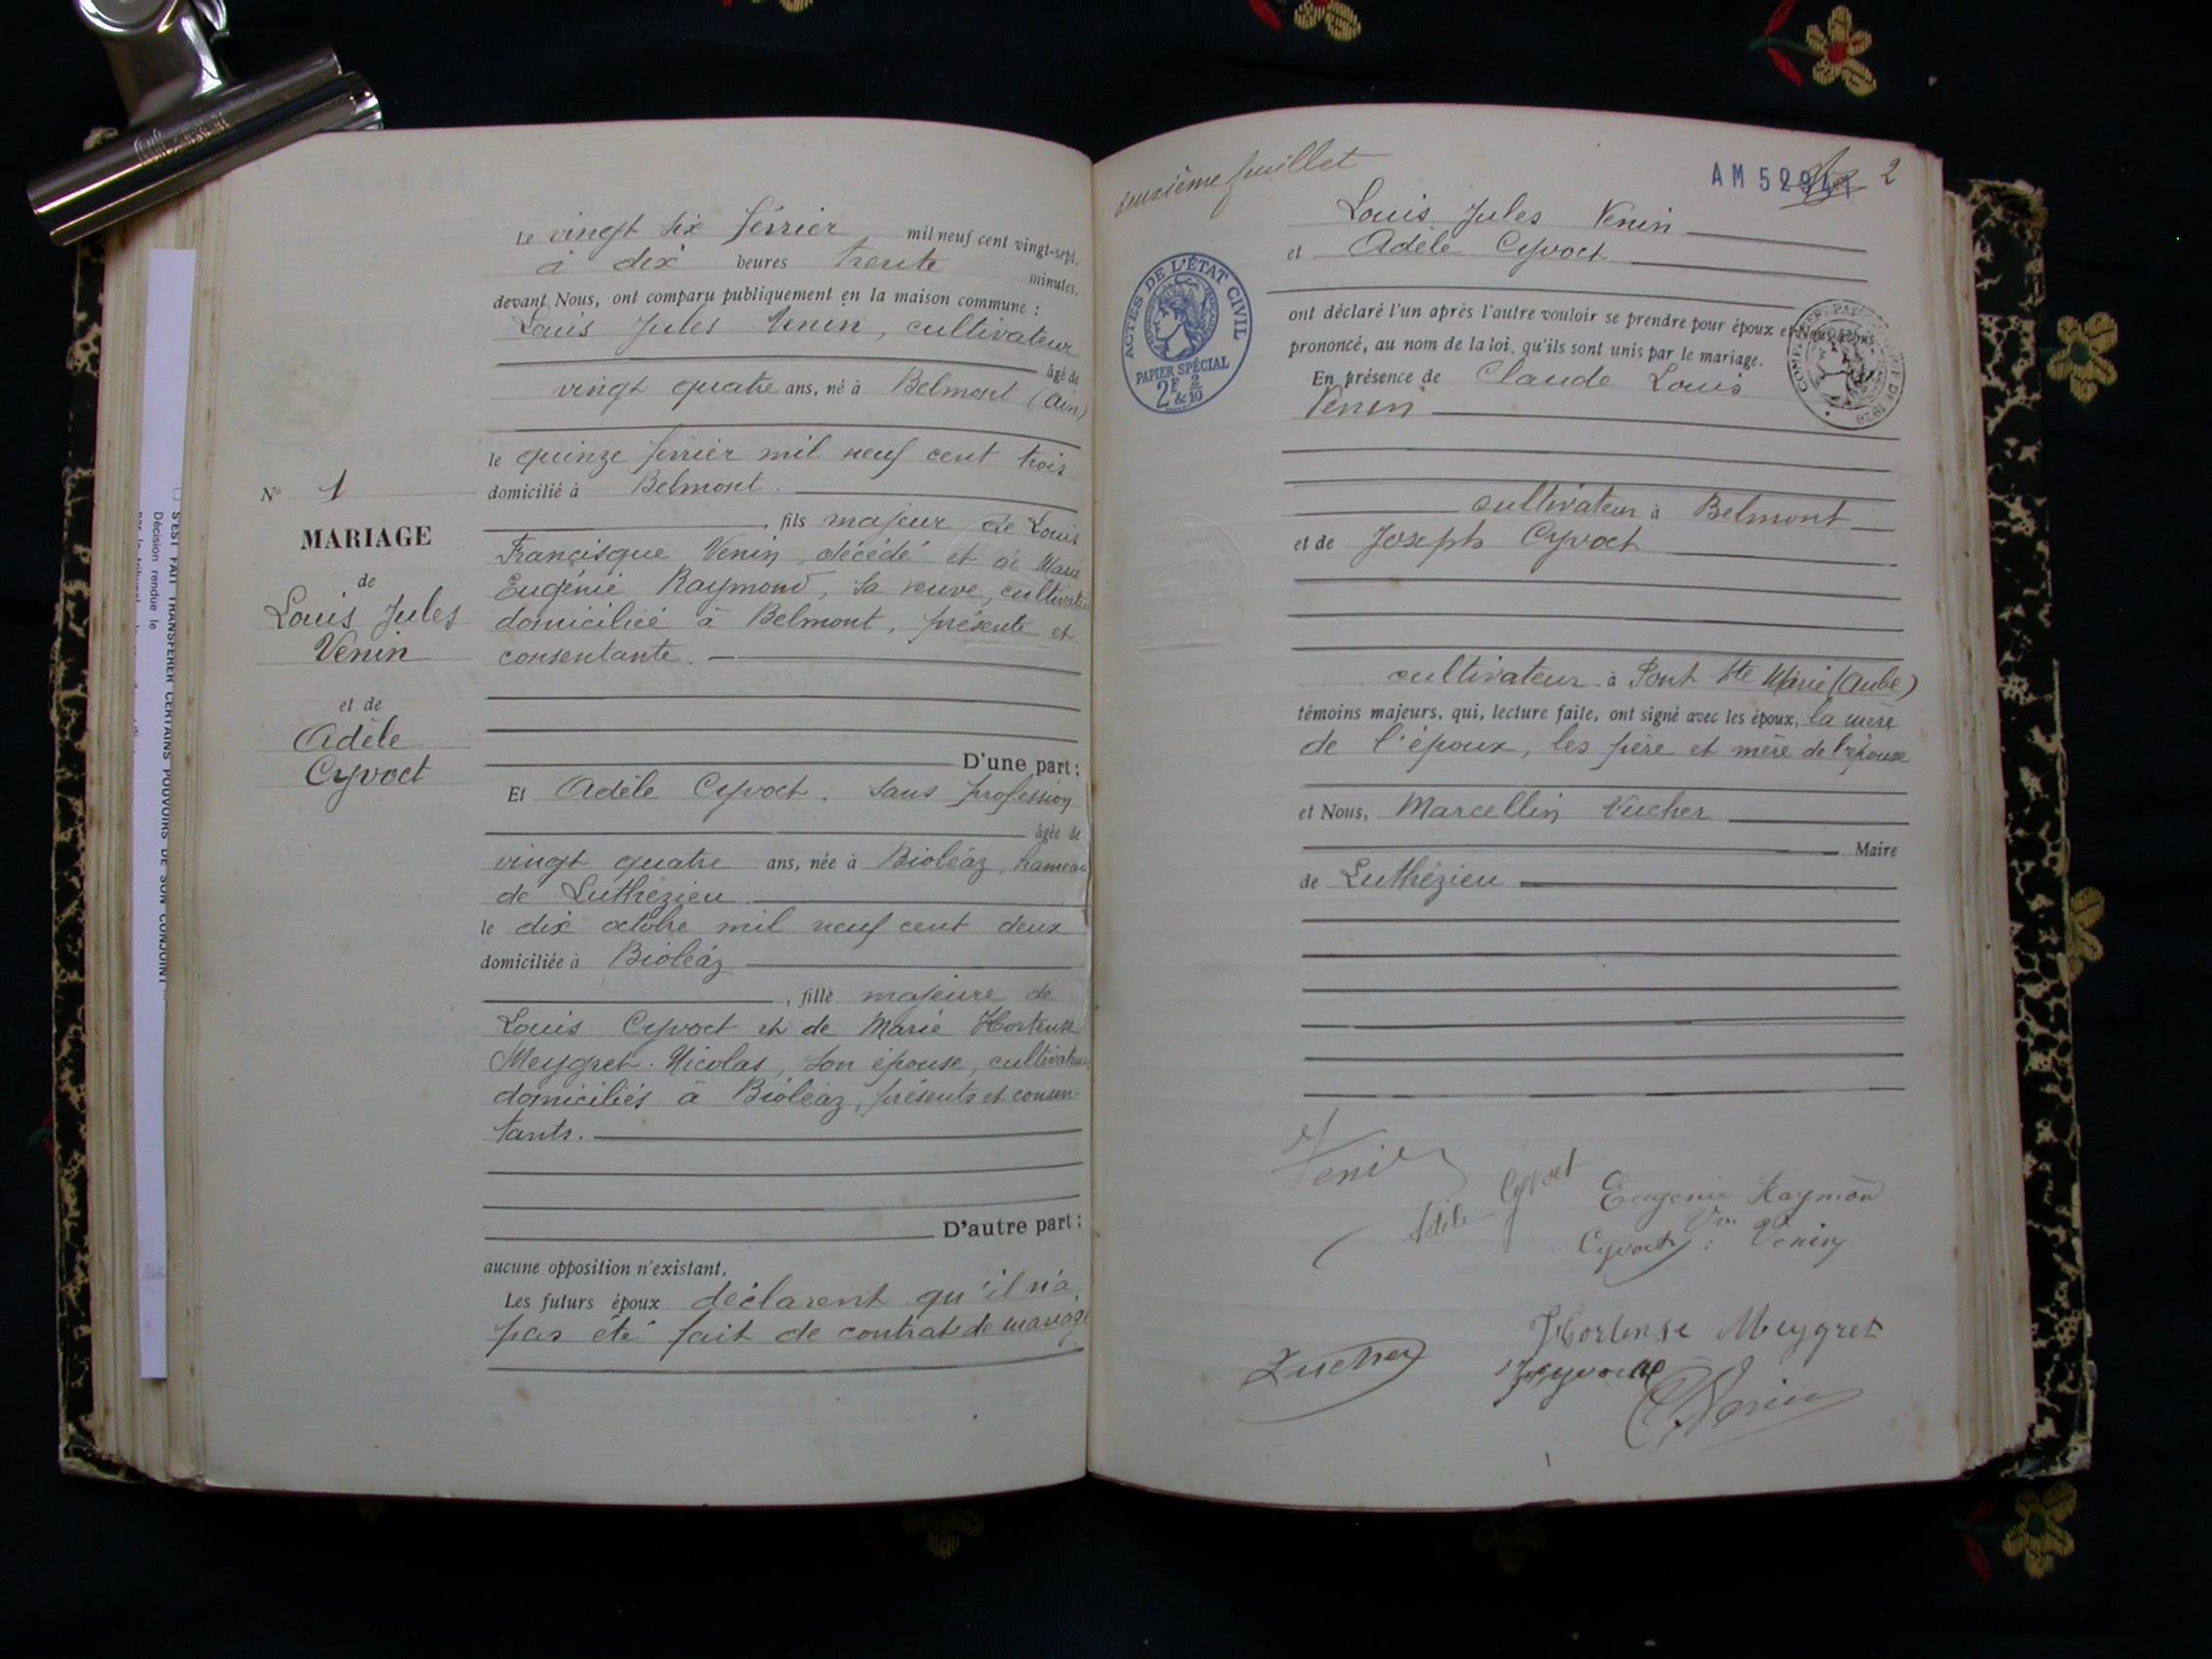 Le vingt six février mil neuf cent vingt-sept.
à dix heures trente minutes,
devant Nous, ont comparu publiquement en la maison commune :
Louis Jules Venin, cultivateur
âgé de
vingt quatre ans, né à Belmont (Ain)
le quinze février mil neuf cent trois
domicilié à Belmont.
, fils majeur de Louis
Francisque Venin, décédé et de Marie
Eugénie Raymond, sa veuve,
domiciliée à Belmont, présente et
consentante.
D'une part :
Et Adèle Cyvoct, sans profession
âgée de
vingt quatre ans, née à Bioléaz, hameau
de Luthézieu
le dix octobre mil neuf cent deux
domiciliée à Bioléaz
, fille majeure de
Louis Cyvoct et de Marie Hortense
Meygret-Nicolas, son épouse, cultivateurs
domiciliés à Bioléaz, présents et consen-
tants.
D'autre part :
aucune opposition n'existant,
Les futurs époux déclarent qu'il n'a
pas été fait de contrat de mariage
N° 1
MARIAGE
de
Louis Jules
Venin
et de
Adèle
Cyvoct
S'EST FAIT TRANSFÉRER CERTAINS POUVOIRS DE SON CONJOINT
Décision rendue le
deuxième feuillet
AM 529 2
Louis Jules Venin
et Adèle Cyvoct
ACTES DE L'ÉTAT CIVIL
PAPIER SPÉCIAL
2F & 2/10
ont déclaré l'un après l'autre vouloir se prendre pour époux et Nous avons
prononcé, au nom de la loi, qu'ils sont unis par le mariage.
En présence de Claude Louis
Venin
cultivateur à Belmont
et de Joseph Cyvoct
cultivateur à Pont Ste Marie (Aube)
témoins majeurs, qui, lecture faite, ont signé avec les époux, la mère
de l'époux, les père et mère de l'épouse
et Nous, Marcellin Vucher
Maire
de Luthézieu
Venin
Adèle Cyvoct
Eugenie Raymond
Vve Venin
Cyvoct
Hortense Meygret
Vucher
J Cyvoct
C Venin